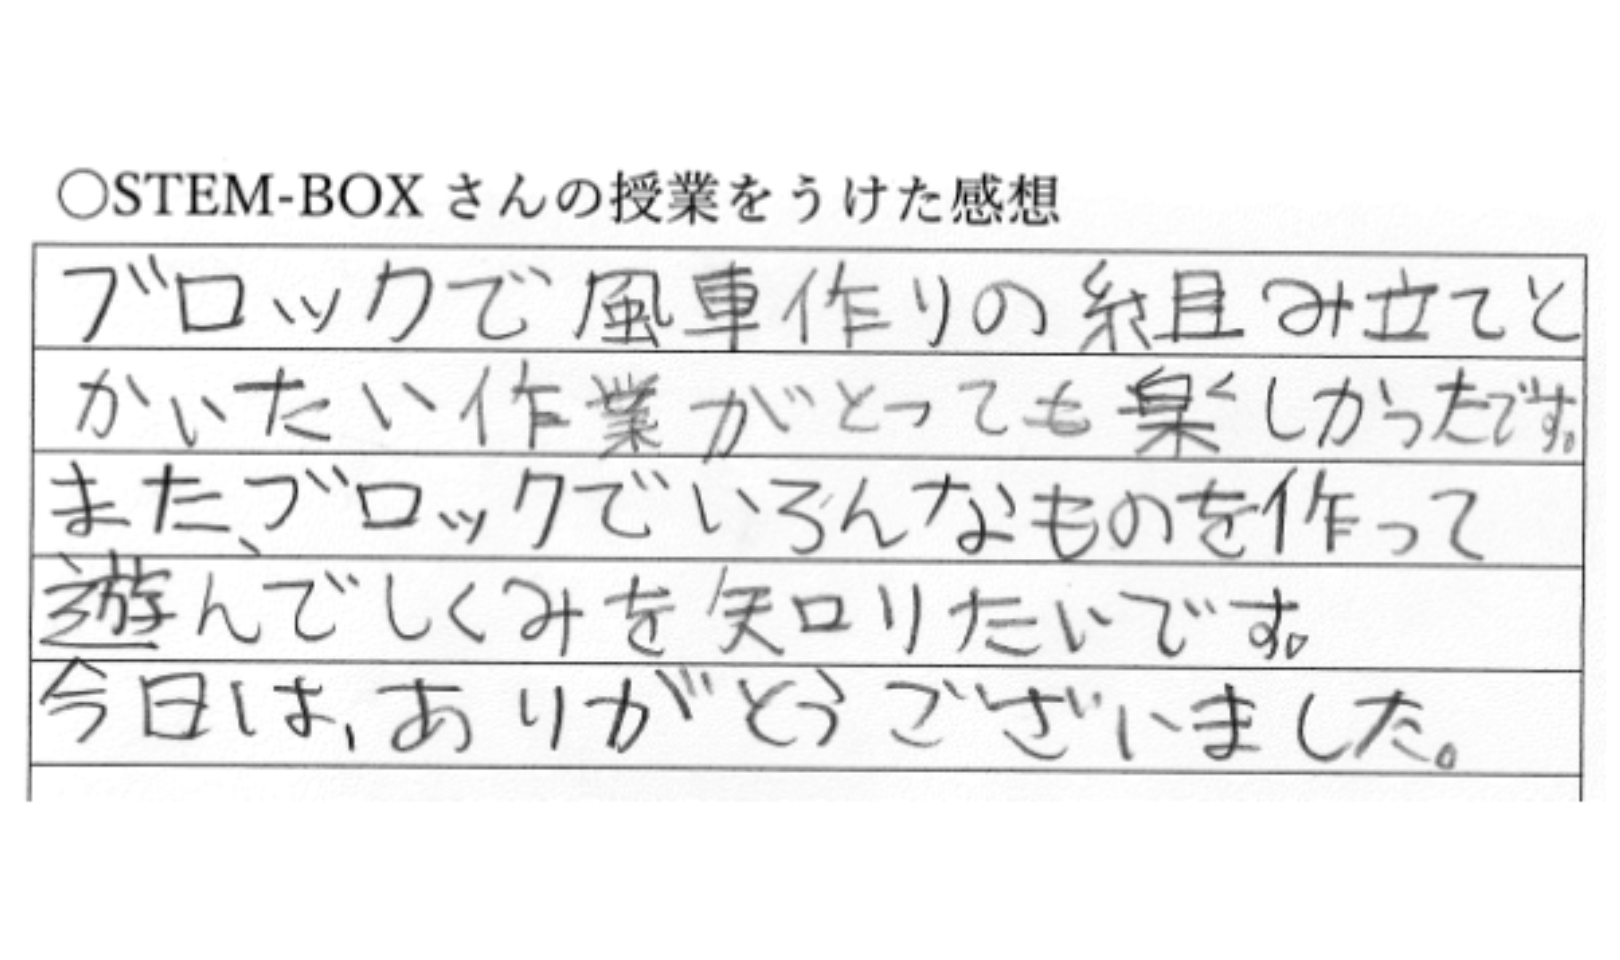 ○STEM-BOX さんの授業をうけた感想
ブロックで風車作りの組み立てと
かいたい作業がとっても楽しかったです。
また、ブロックでいろんなものを作って
遊んでしくみを知りたいです。
今日は、ありがとうございました。